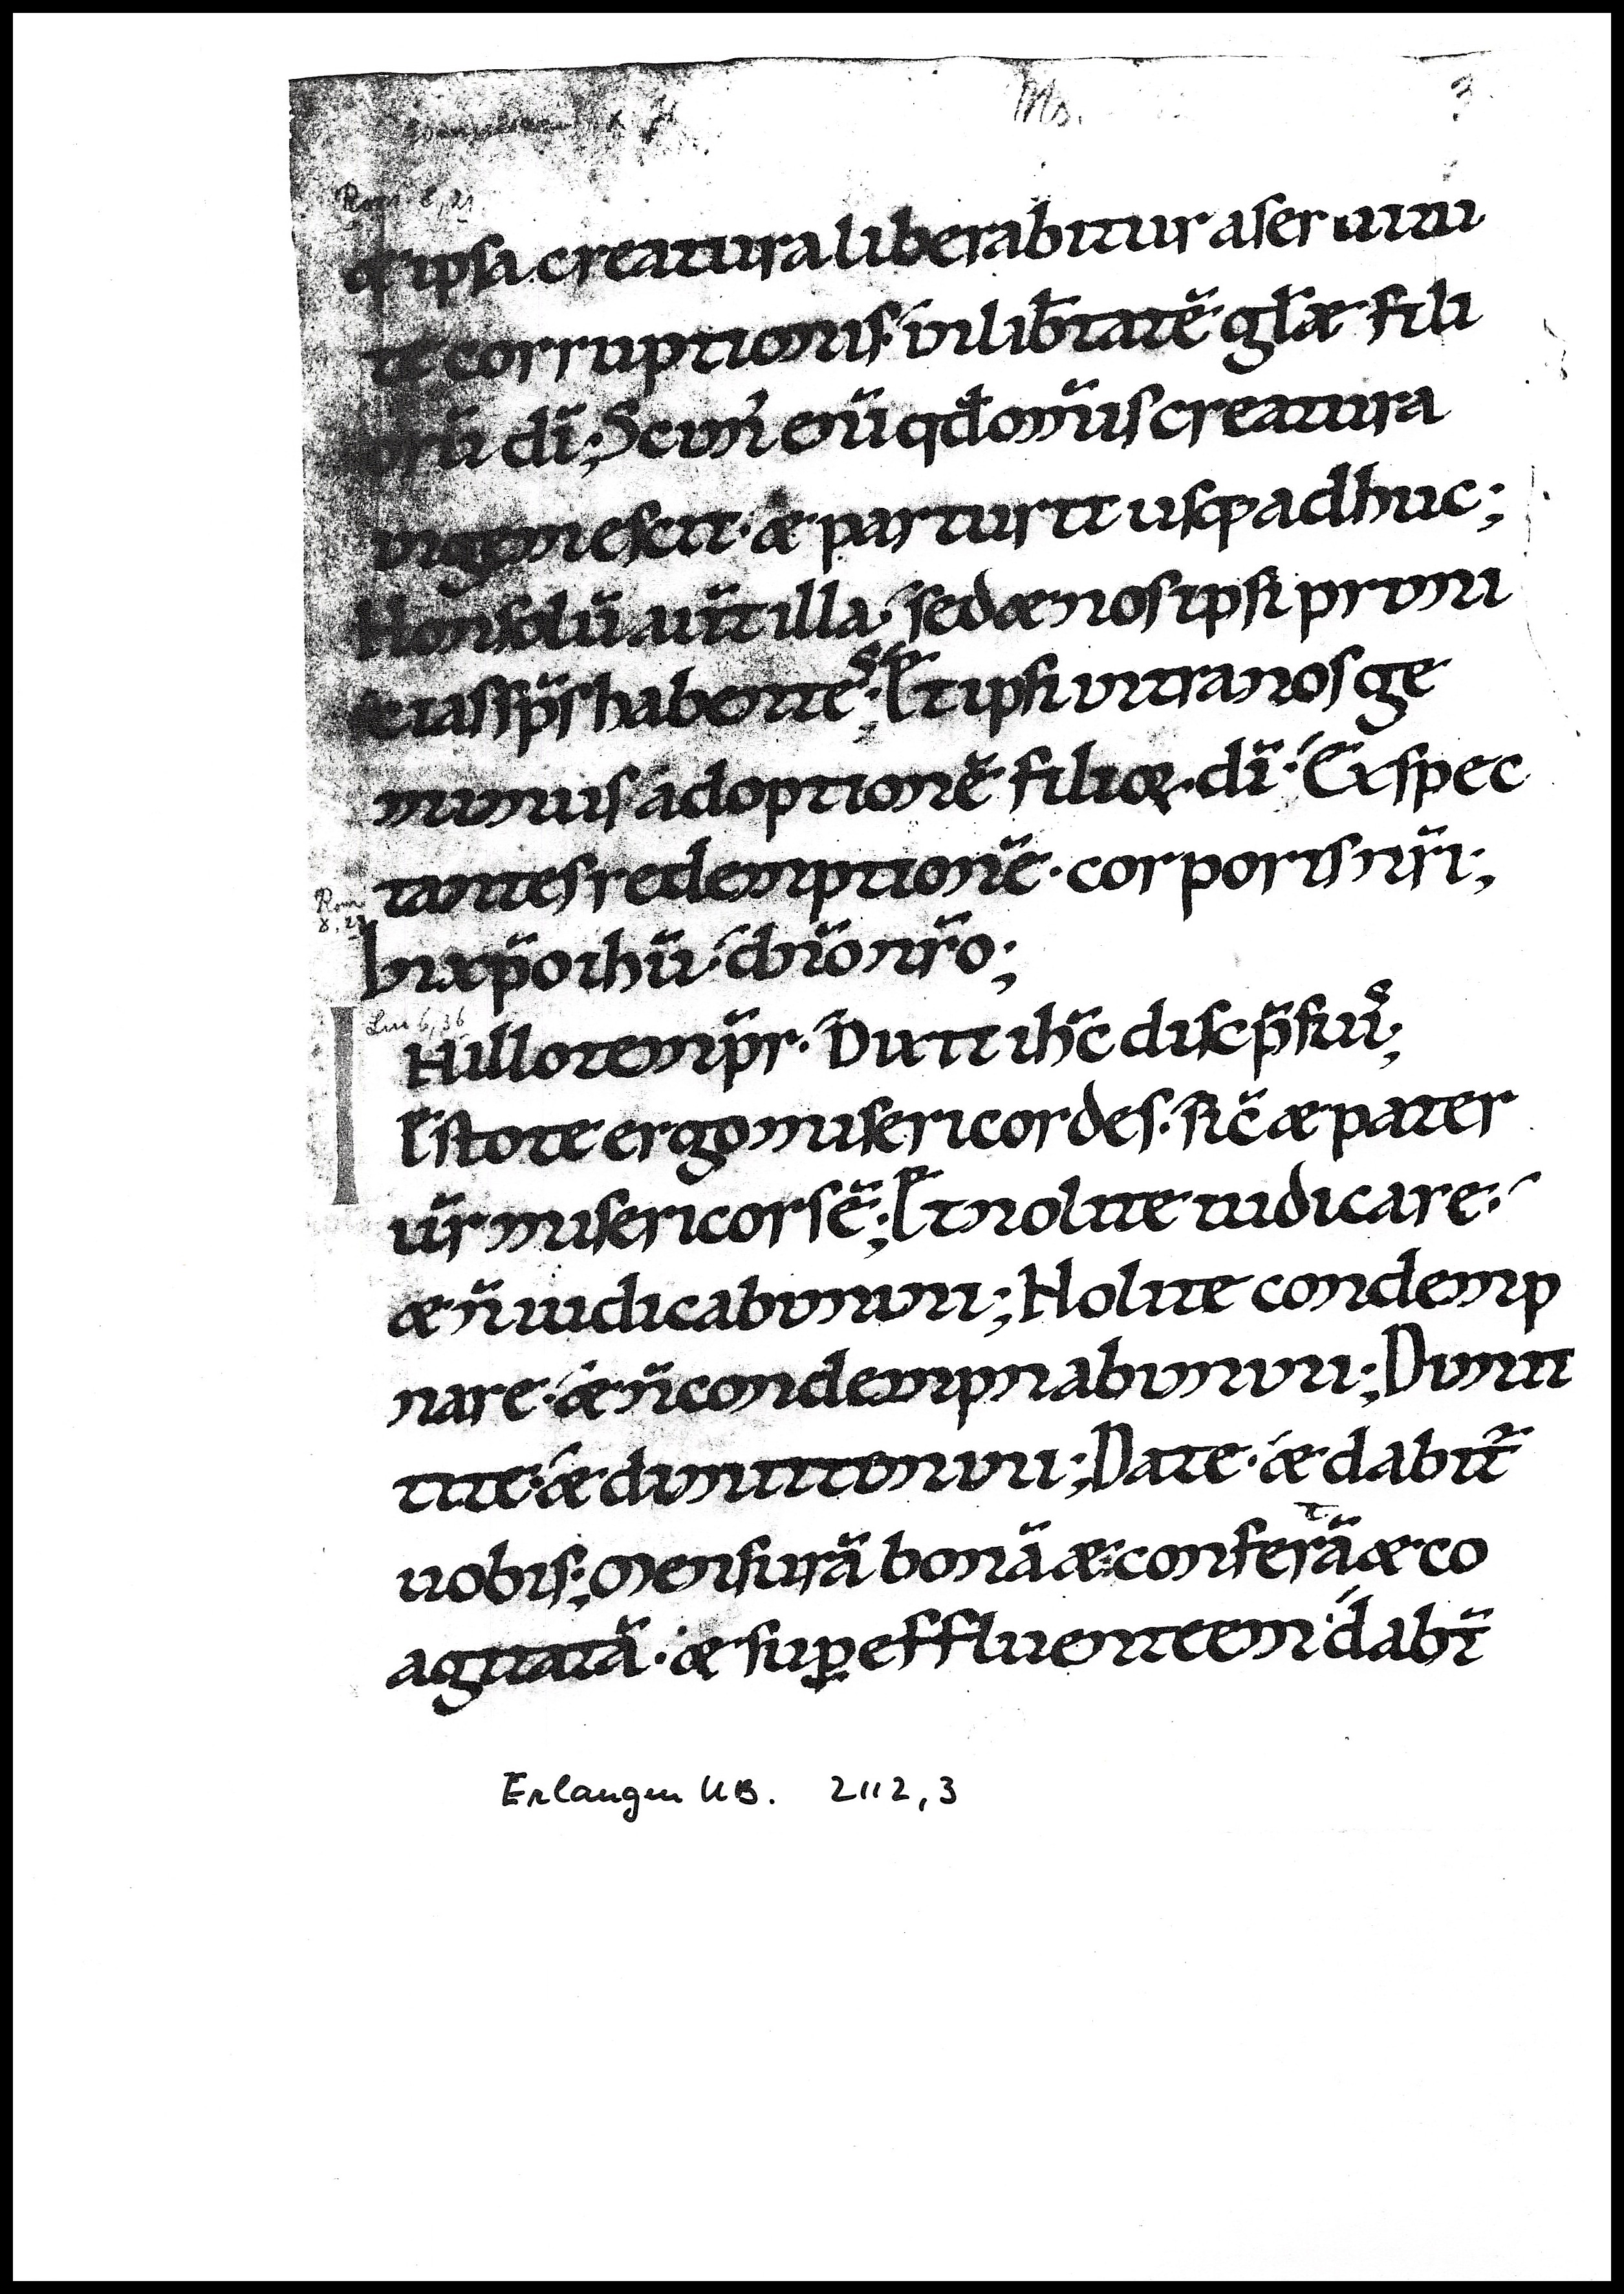 Ms. 3
Rom. 8,21
ipsa creatura liberabitur a seruitu
te corruptionis· in lib̄tatē gl̄ae fili
orū dī; Scim' enī qđ omīs creatura
ingemescit· & parturit usq; adhuc;
Non solū aūt illa· sed & nos ipsi primi
tias sp̄s habentes; Et ipsi intra nos ge
mimus adoptionē filioꝝ dī· Exspec
tantes redemptionē· corporis nr̄i;
Rom 8,23
In xp̄o ihū· dn̄o nr̄o;
Luc 6,36
IN illo temp̄r· Dixit ihc̄ discp̄ suis;
Estote ergo misericordes· sic̄ & pater
ur̄ misericors ē; Et nolite iudicare·
& n̄ iudicabimini; Nolite condemp
nare· & n̄ condempnabimini; Dimit
tite· & dimittemini; Date· & dabit̄
uobis; Mensurā bonā & confertā & co
agitatā· & suꝑeffluentem· dabt̄
Erlangen UB. 2112,3